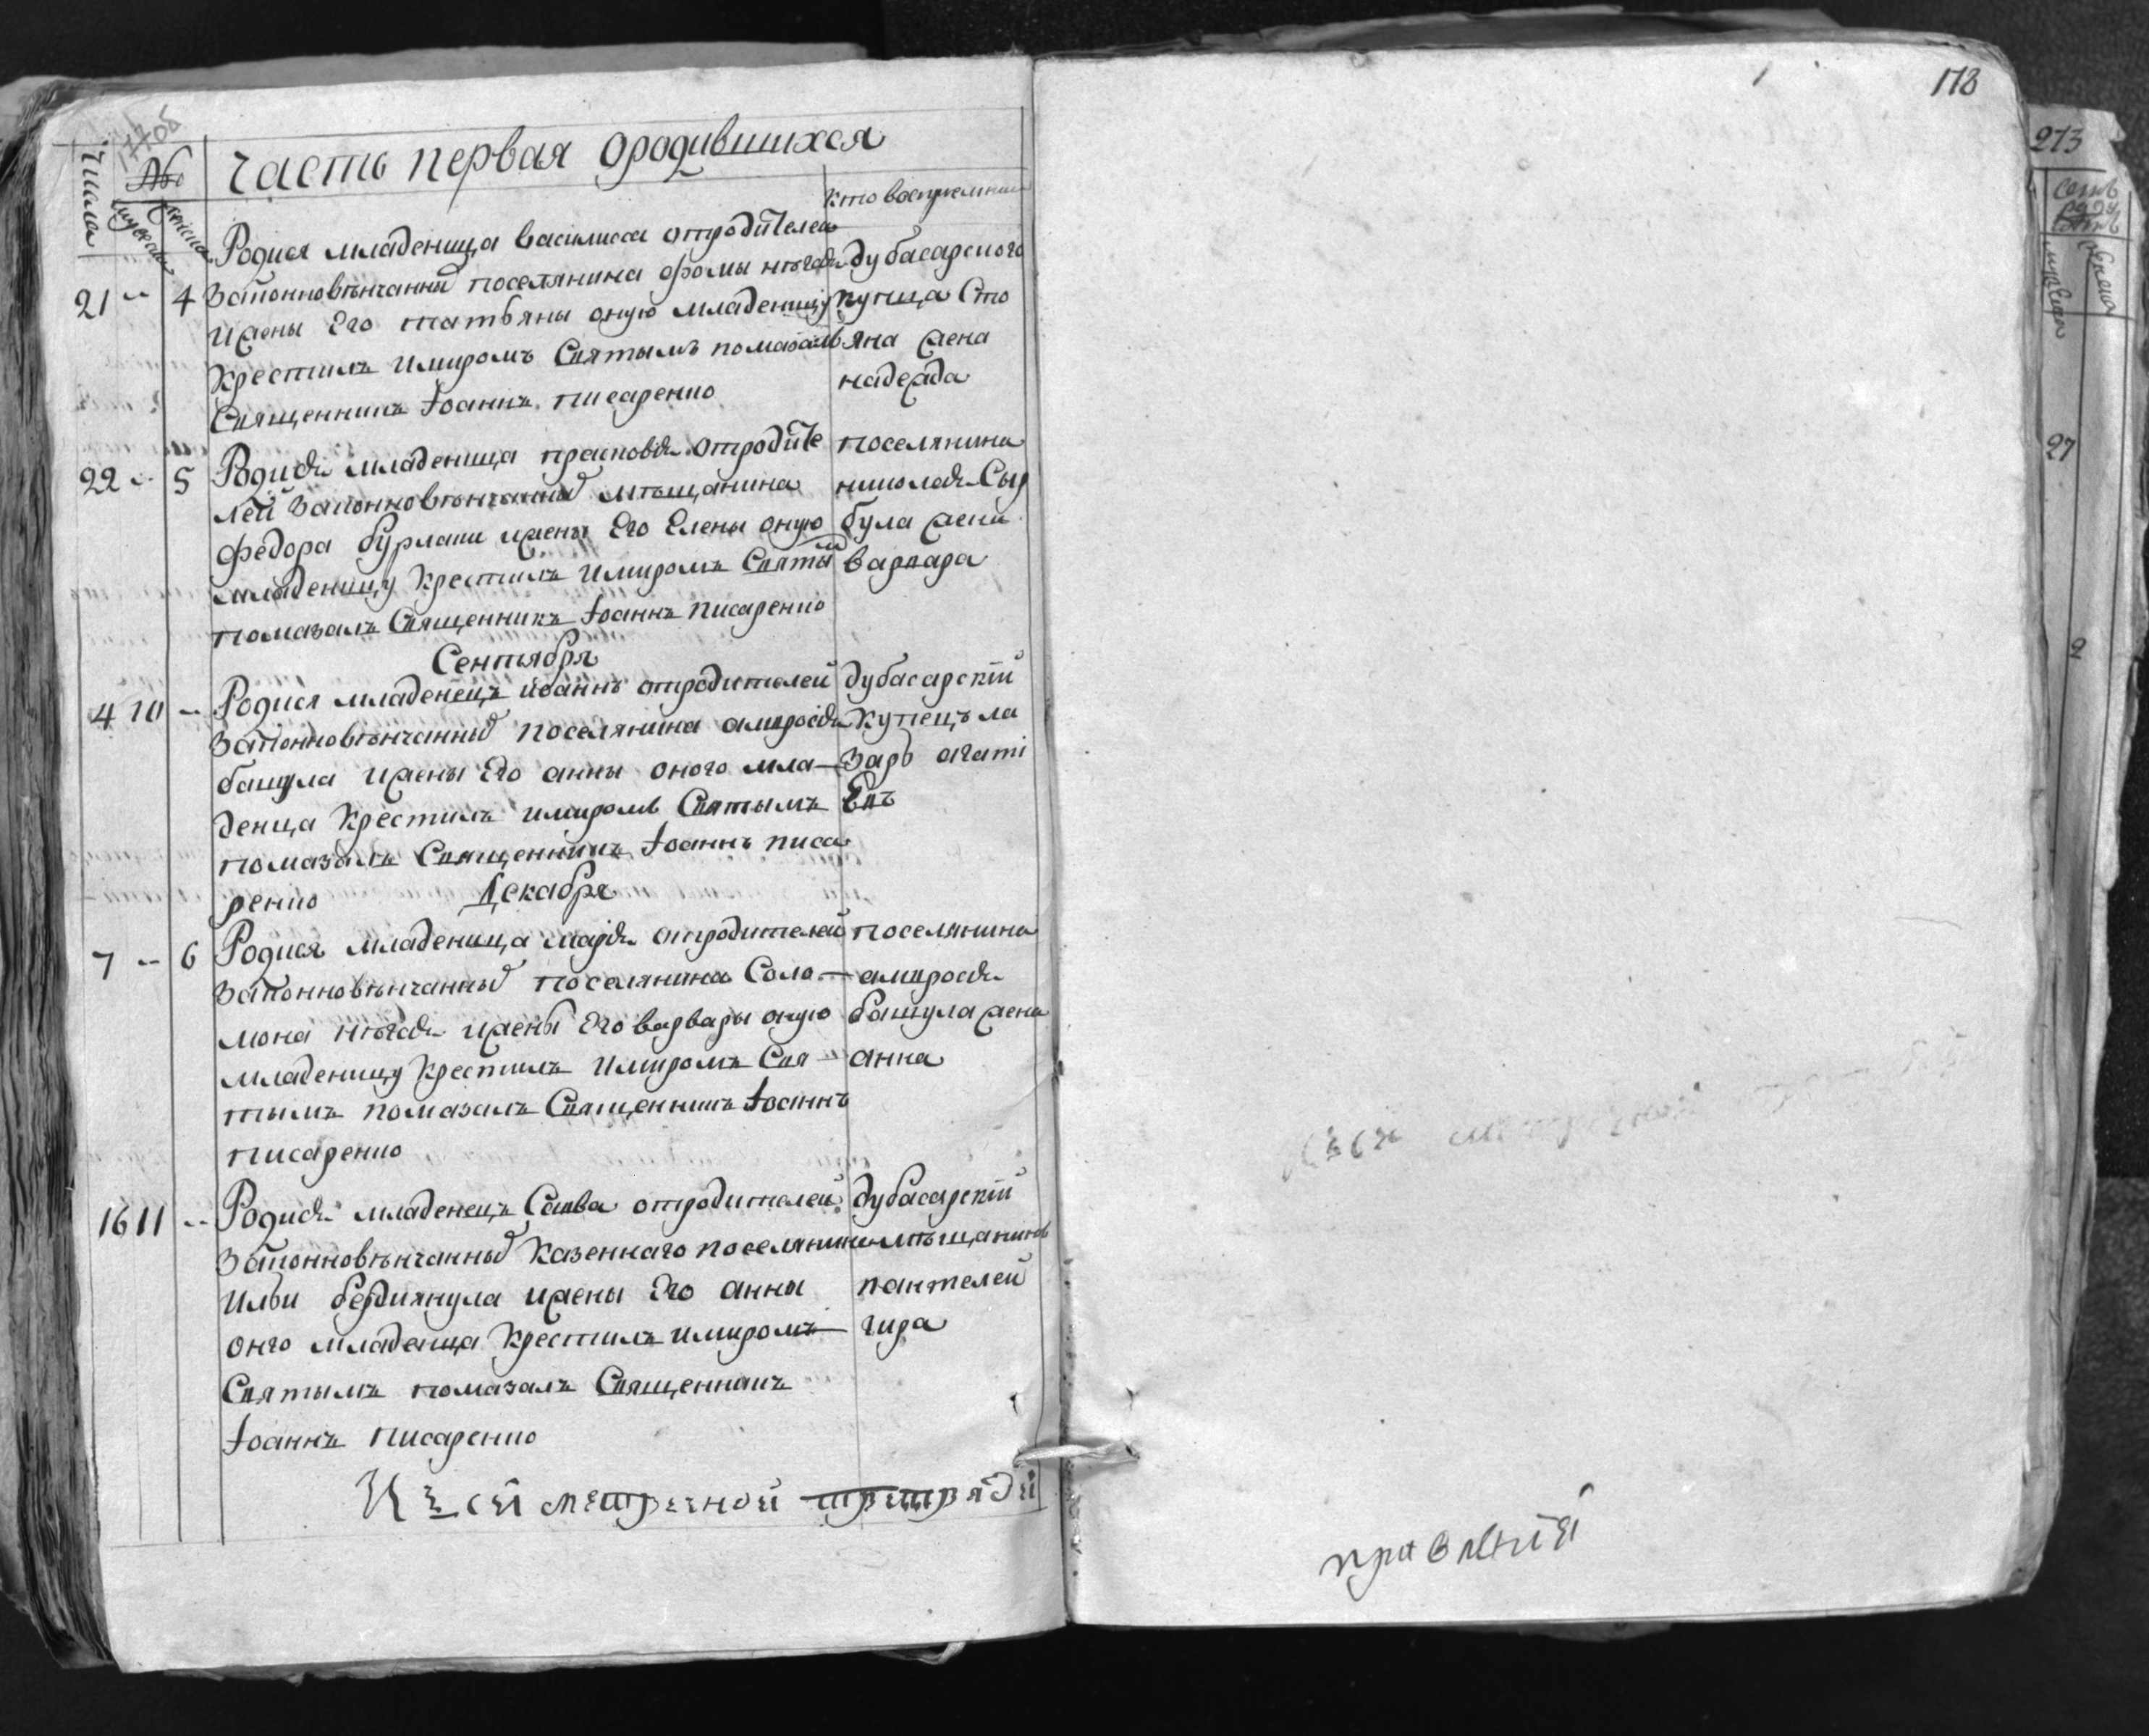 часть первая ородившихся
числа
№
мужеска
женска
кто воспрiемники
Родися младеница василисса отродителей
21 - 4 законновѣнчанный поселянина фомы нягоя
ижены Его татьяны оную младеницу
крестилъ имиромъ Святымъ помазалъ
Священникъ Іоаннъ писаренко
дубасарского
купца Сто
яна жена
надежда
22 - 5 Родися младеница прасковiя отродите
лей законновѣнчанных мѣщанина
федора бурлаки ижены Его Елены оную
младеницу крестилъ имиромъ Святым
помазалъ Священникъ Іоаннъ писаренко
поселянина
николая Сыр
була жена
варвара
Сентября
4 10 - Родися младенецъ иоаннъ отродителей
законновѣнчанных поселянина амвросiя
башула ижены Его анны оного мла
денца крестилъ имиромъ Святымъ
помазалъ Священникъ Іоаннъ писа
ренко
дубасарскiй
купецъ ла
зарь агатi
Евъ
Декабря
7 - 6 Родися младеница марiя отродителей
законновѣнчанных поселянина Соло
мона нягоя ижены Его варвары оную
младеницу крестилъ имиромъ Свя
тымъ помазалъ Священникъ Іоаннъ
писаренко
поселянина
амвросiя
башула жена
анна
16 11 - Родися младенецъ Савва отродителей
законновѣнчанных казеннаго поселянина
Ильи бердиянула ижены Его анны
онго младенца крестилъ имиромъ
Святымъ помазалъ Священникъ
Іоаннъ писаренко
дубасарскiй
мѣщанинъ
пантелей
гира
Къ сей метричной
178
273
27
2